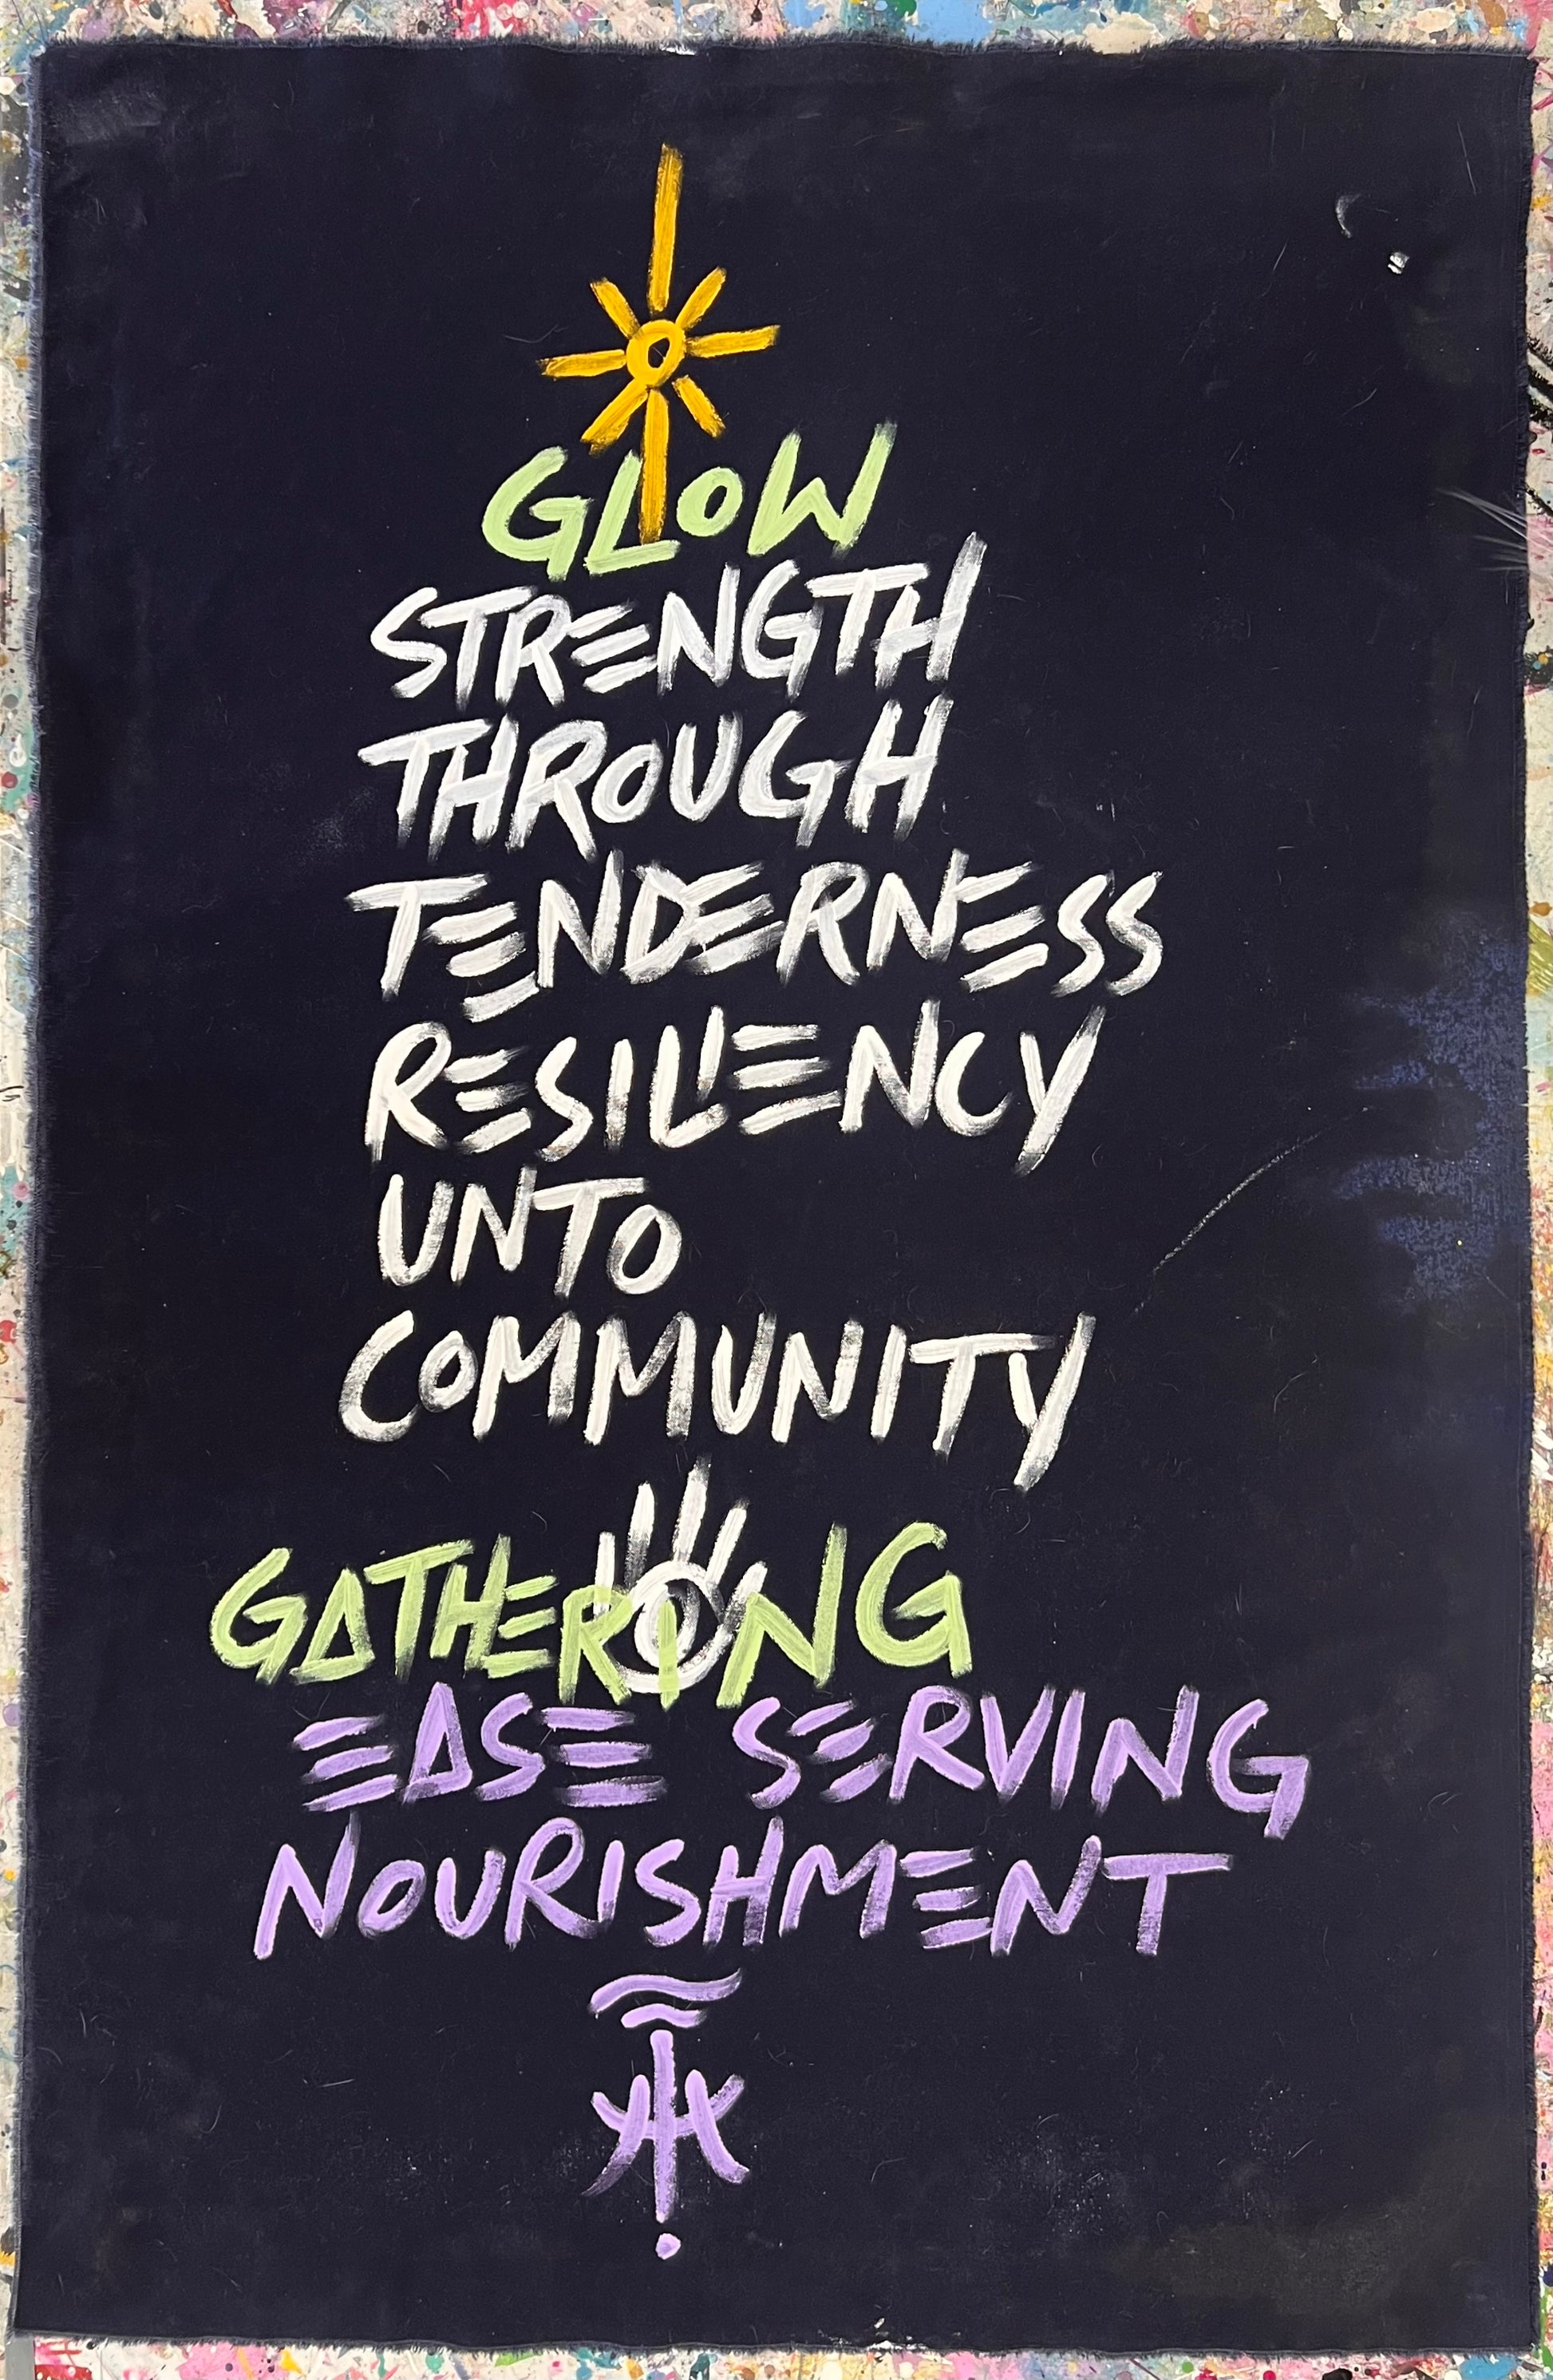 GLOW
STRENGTH
THROUGH
TENDERNESS
RESILIENCY
UNTO
COMMUNITY
GATHERING
EASE SERVING
NOURISHMENT